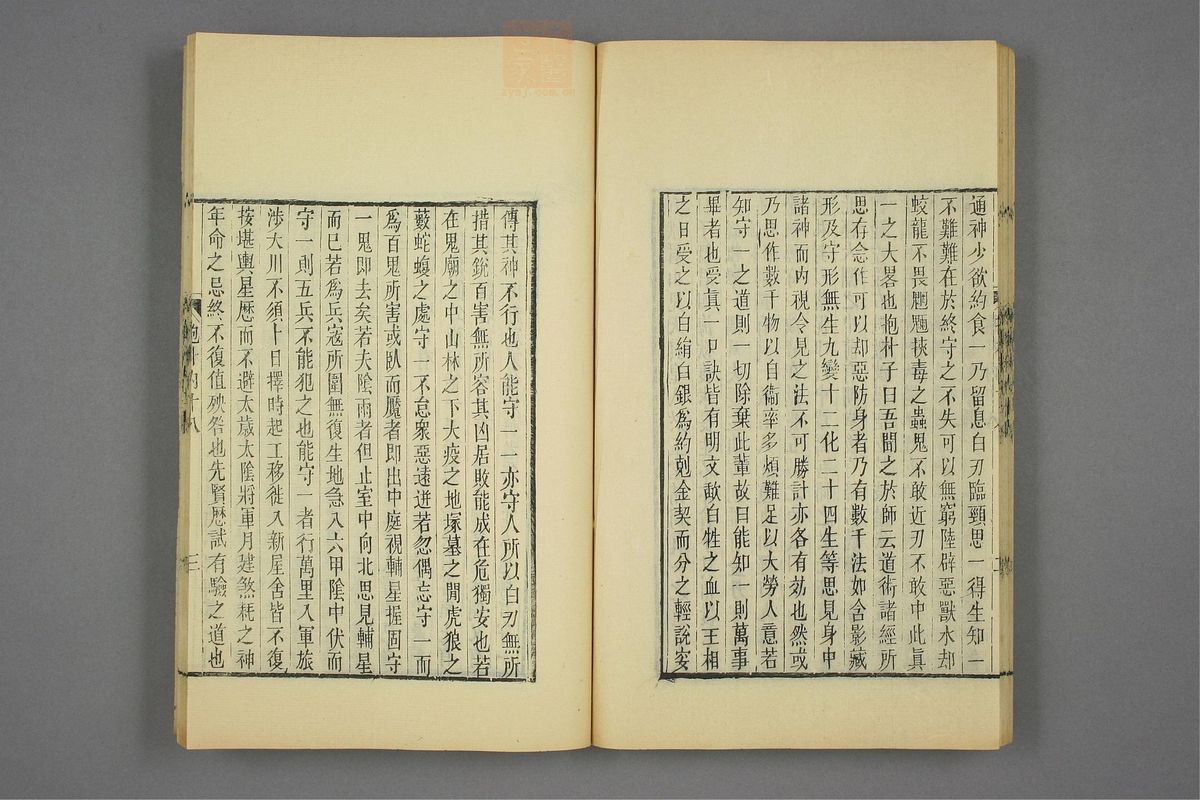 通神少欲約食一乃留息白刃臨頸思一得生知一
不難難在於終守之不失可以無窮陸辟惡獸水却
蛟龍不畏魍魎挾毒之蟲鬼不敢近刃不敢中此真
一之大畧也抱朴子曰吾聞之於師云道術諸經所
思存念作可以却惡防身者乃有數千法如含影藏
形及守形無生九變十二化二十四生等思見身中
諸神而内視令見之法不可勝計亦各有効也然或
乃思作數千物以自衞率多煩難足以大勞人意若
知守一之道則一切除棄此輩故曰能知一則萬事
畢者也受真一口訣皆有明文歃白牲之血以王相
之日受之以白絹白銀為約剋金契而分之輕說妄
傳其神不行也人能守一一亦守人所以白刃無所
措其銳百害無所容其凶居敗能成在危獨安也若
在鬼廟之中山林之下大疫之地塚墓之閒虎狼之
藪蛇蝮之處守一不怠衆惡遠迸若忽偶忘守一而
為百鬼所害或臥而魘者即出中庭視輔星握固守
一鬼即去矣若夫陰雨者但止室中向北思見輔星
而已若為兵寇所圍無復生地急入六甲陰中伏而
守一則五兵不能犯之也能守一者行萬里入軍旅
涉大川不須卜日擇時起工移徙入新屋舍皆不復
按堪輿星歷而不避太歲太陰將軍月建煞耗之神
年命之忌終不復值殃咎也先賢歷試有驗之道也
三
zysj.com.cn